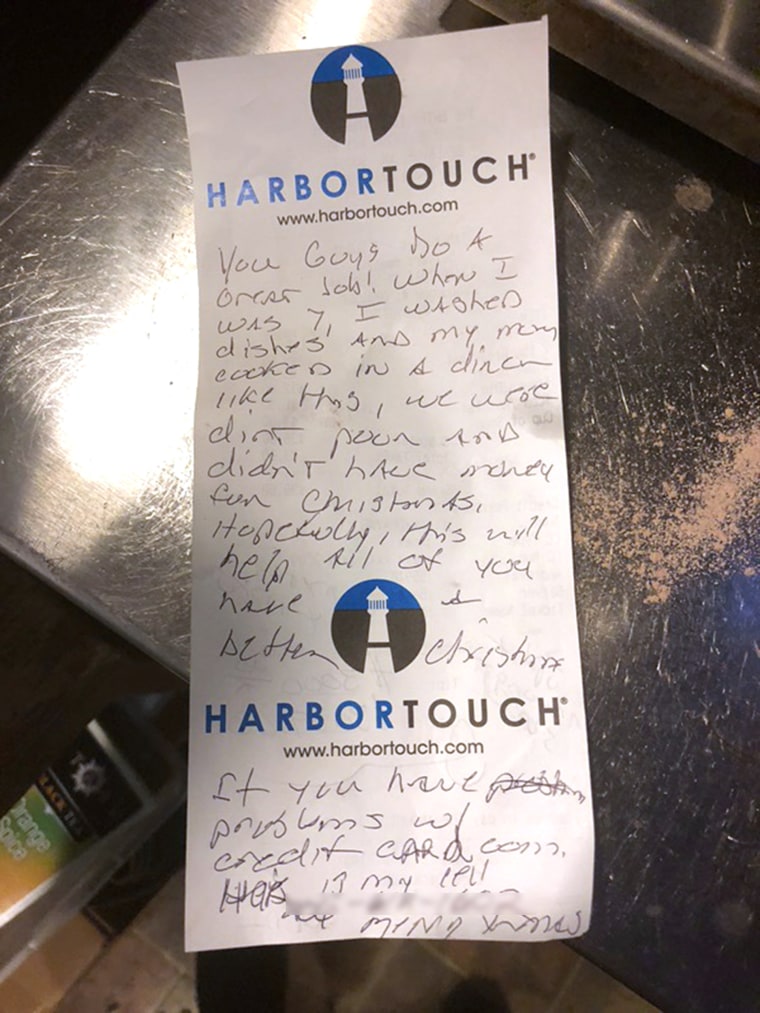 HARBORTOUCH®
www.harbortouch.com
You Guys Do A
Great Job! When I
was 7, I washed
dishes and my mom
cooked in a diner
like this, we were
dirt poor and
didn't have money
for Christmas.
Hopefully, this will
help all of you
have a
better Christmas
HARBORTOUCH®
www.harbortouch.com
If you have
problems w/
credit card com.
is my cell
Merry Xmas
range